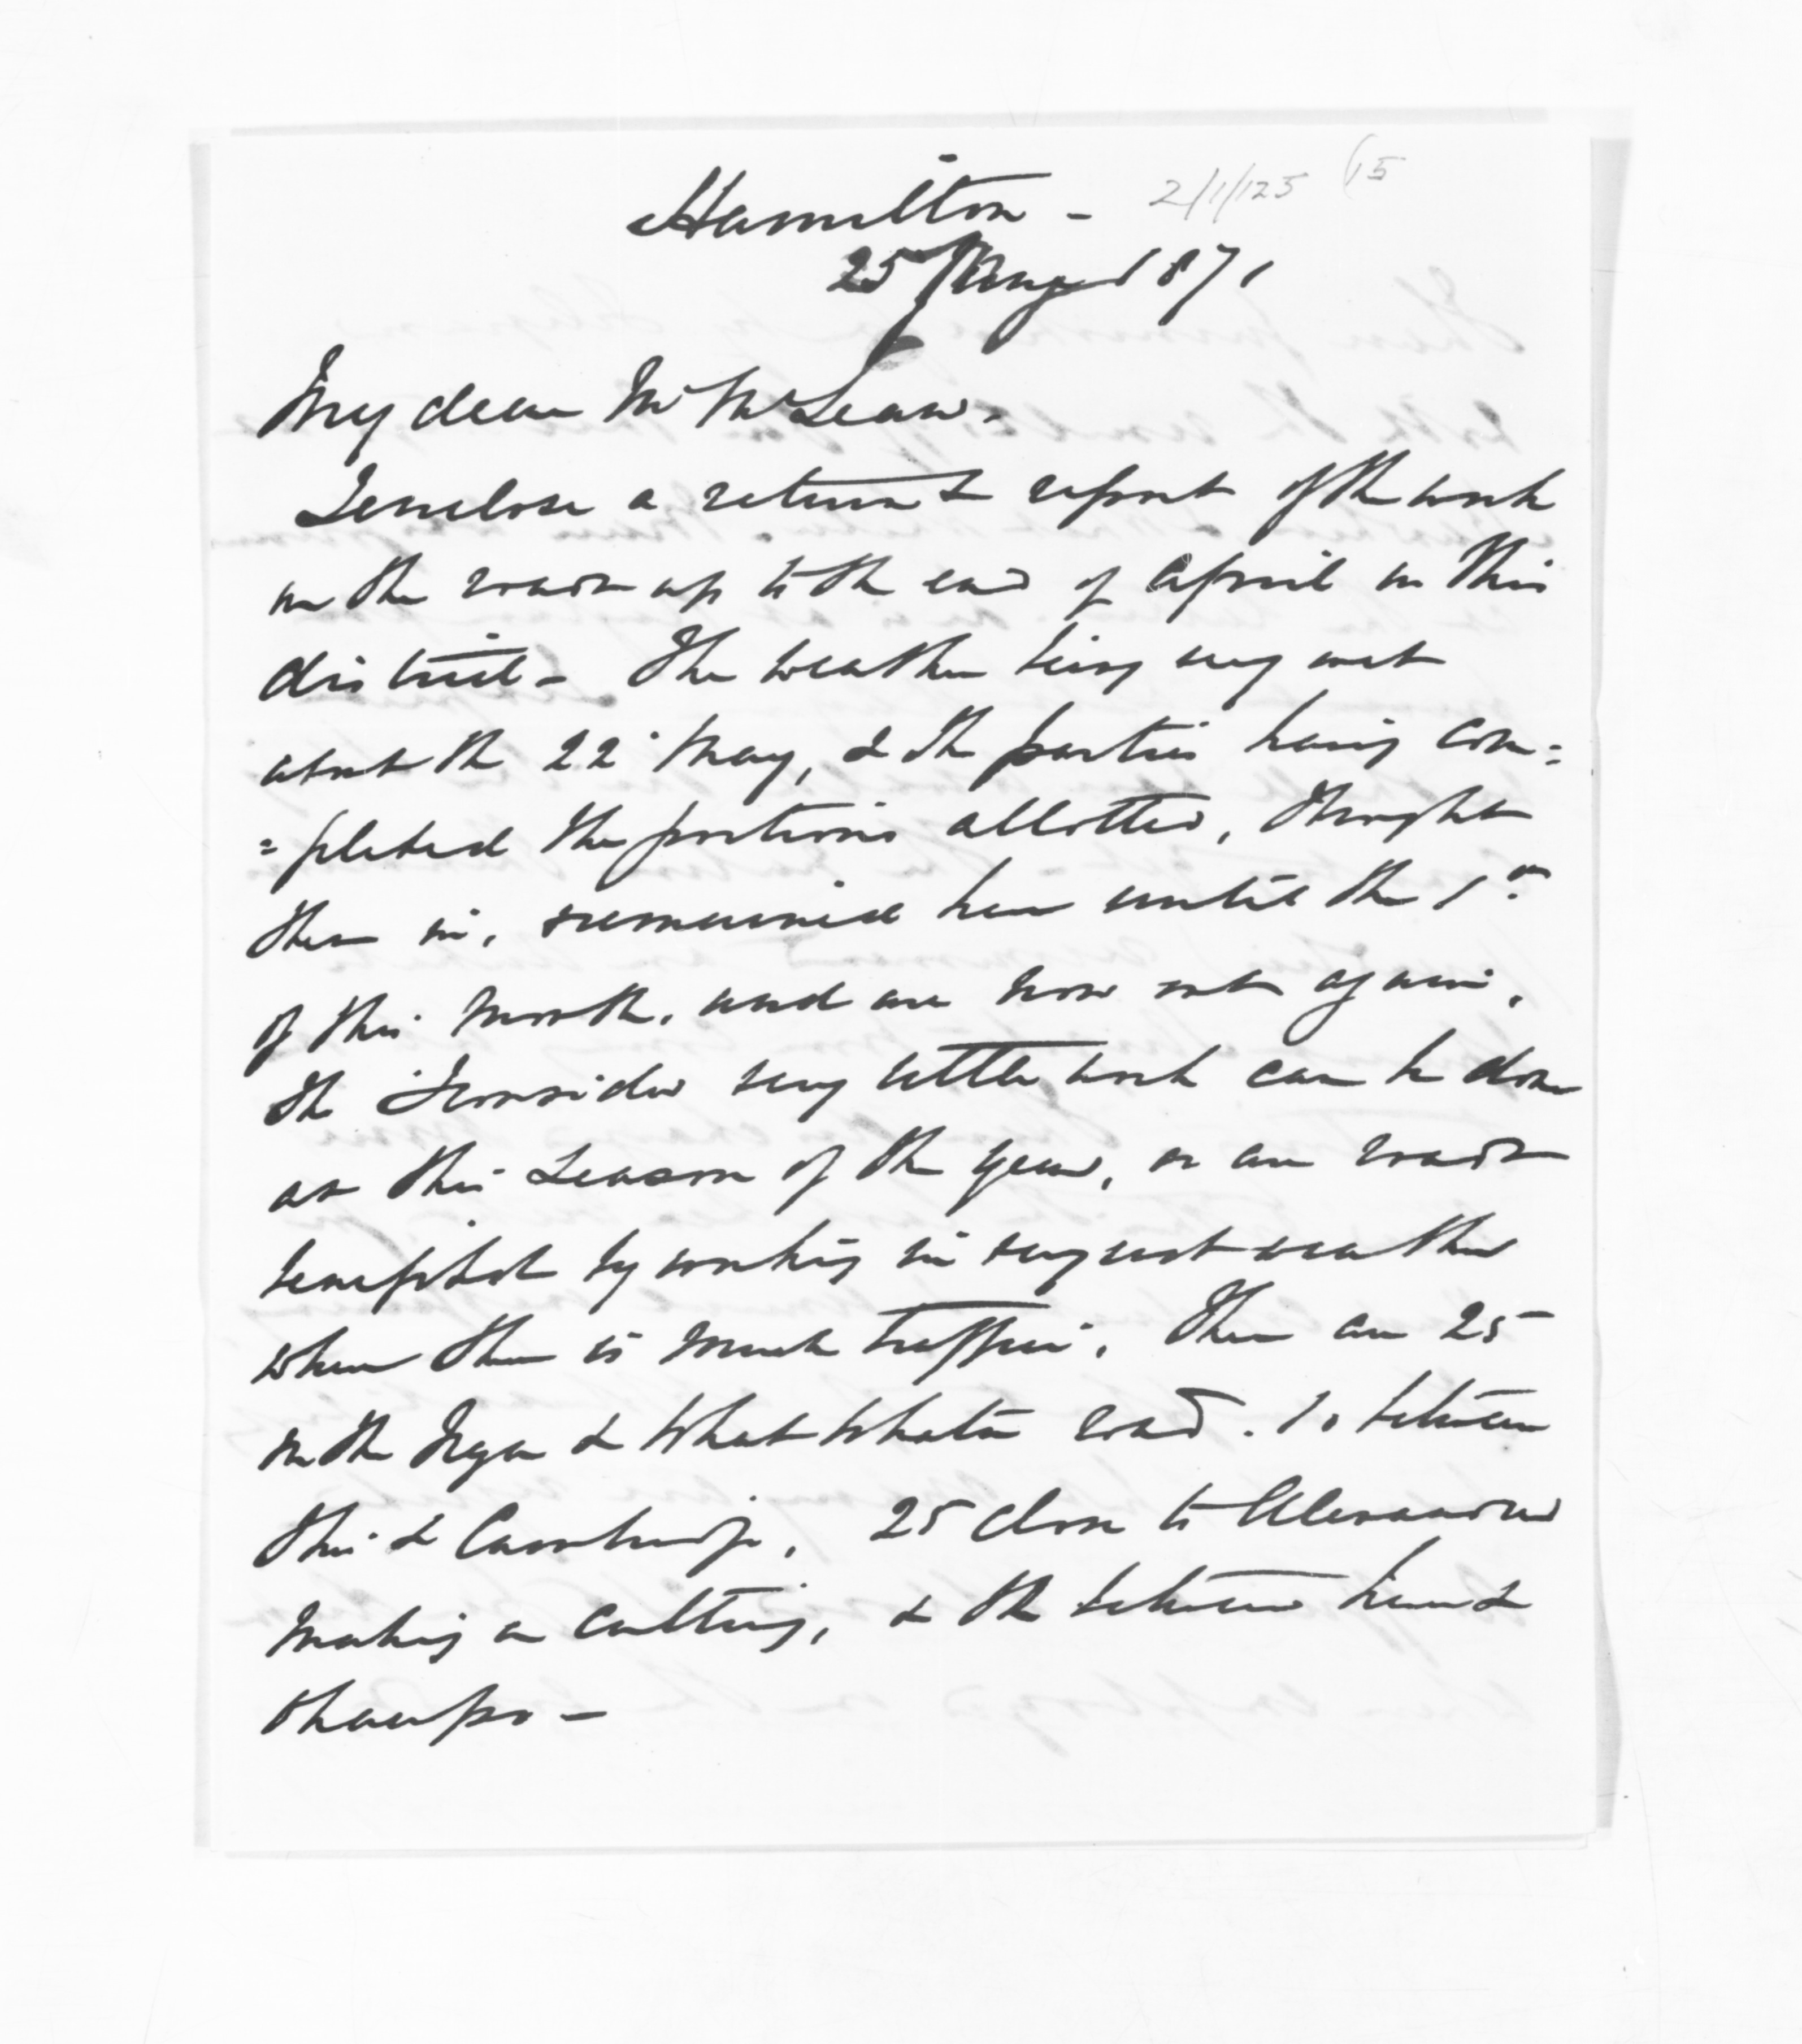 Hamilton -
2/1/125 (15
25 May 1871
My dear Mr McLean.
I enclose a return & report of the work
on the roads up to the end of April in this
district - The weather being very wet
about the 22 May, & the parties having com=
=pleted the portions allotted, thought
them in, remained here until the 1st
of this month. and are now out again,
tho I consider very little work can be done
at this season of the year, or are roads
benefited by working in very wet weather
where there is much traffic. There are 25
on the Nga & Whatawhata road. 10 between
this & Cambridge, 25 close to Alexandra
making a cutting, & the between here &
Ohaupo -